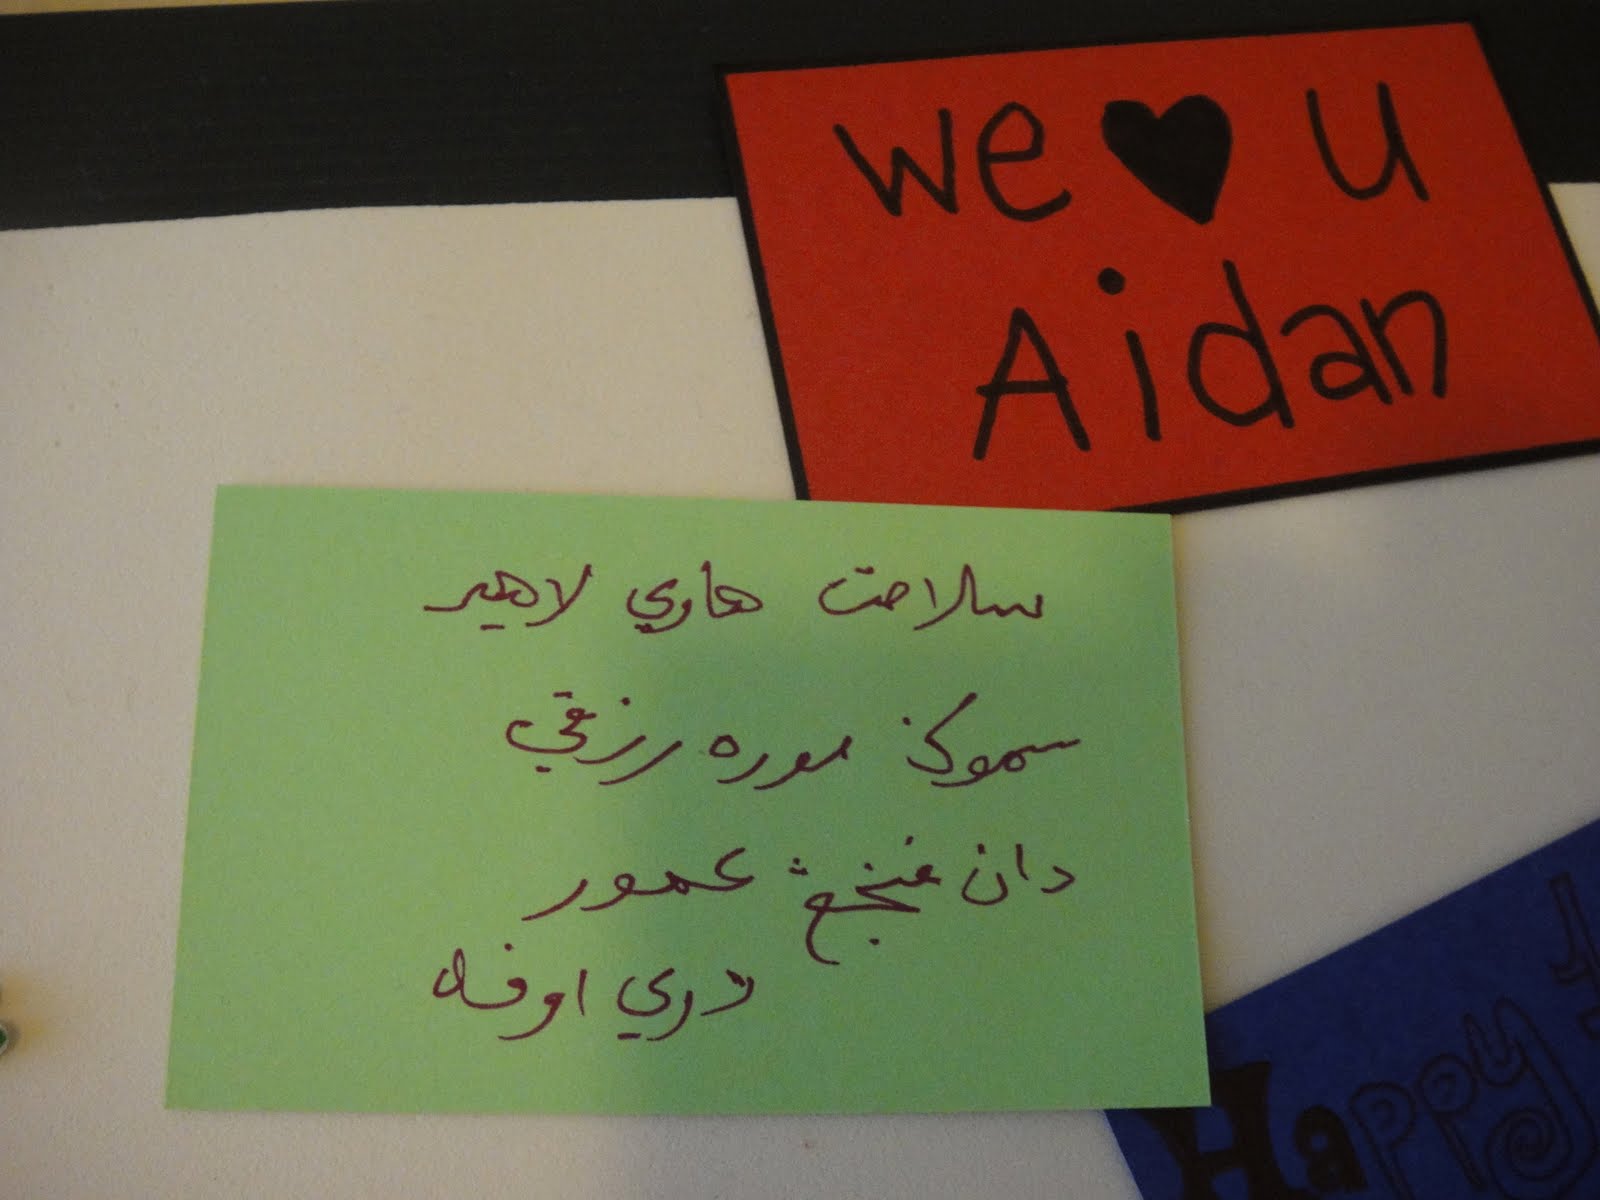 we ♥ u
Aidan
سلامت هاري لاهير
سموݢ موره رزقي
دان ڤنجڠ عمور
دري اوفه
Happy